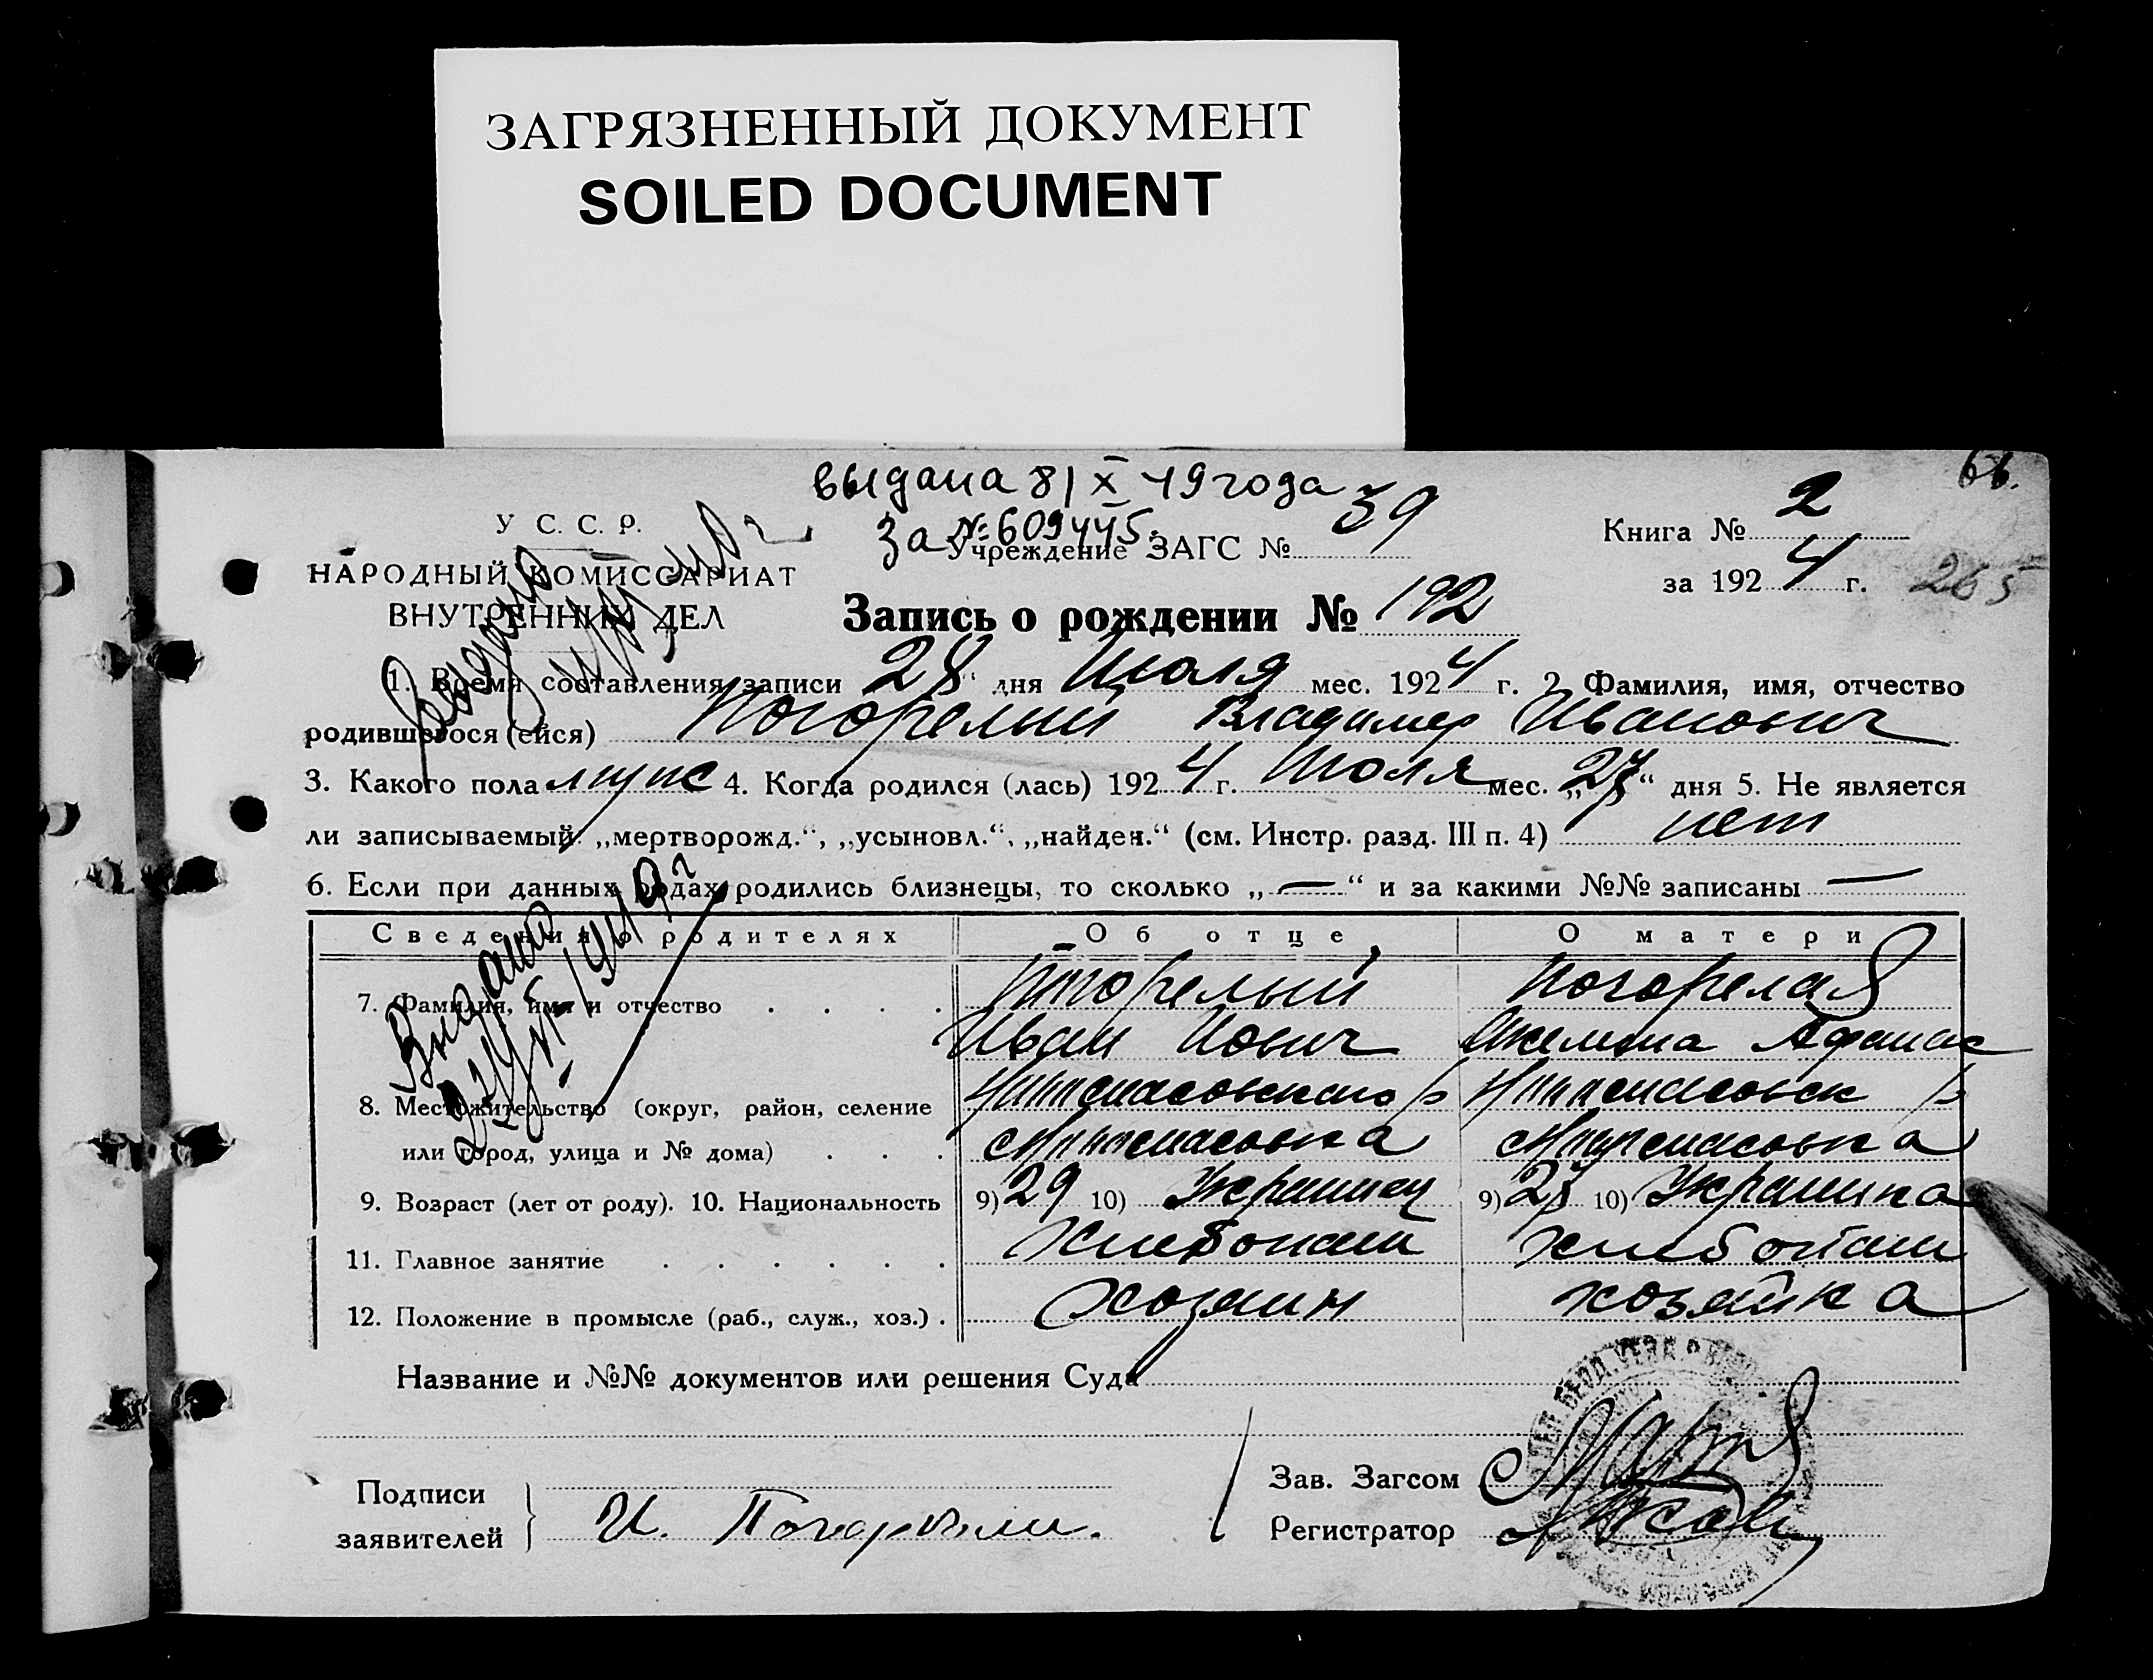 ЗАГРЯЗНЕННЫЙ ДОКУМЕНТ
SOILED DOCUMENT
выдана 8/X 49 года
за № 609445.
66.
У С. С. Р.
НАРОДНЫЙ КОМИССАРИАТ
ВНУТРЕННИХ ДЕЛ
Учреждение ЗАГС № 39
Книга № 2
за 1924 г. 265
Запись о рождении № 192
1. Время составления записи 28 " дня Июля мес. 1924 г. 2. Фамилия, имя, отчество
родившегося (ейся) Погорелый Владимер Иванович
3. Какого пола муж 4. Когда родился (лась) 1924 г. Июля мес. „27“ дня 5. Не является
ли записываемый: „мертворожд.“, „усыновл.“, „найден.“ (см. Инстр. разд. III п. 4) нет
6. Если при данных родах родились близнецы, то сколько „—“ и за какими №№ записаны —
Выдано
Сведения о родителях Об отце О матери
7. Фамилия, имя и отчество . . . . Погорелый Погорелая
Иван Иович Афанас
8. Местожительство (округ, район, селение
или город, улица и № дома) . . .
9. Возраст (лет от роду). 10. Национальность 9) 29 10) Украинец 9) 10) Украинка
11. Главное занятие . . . . . . Хлебопаш хлебопаш
12. Положение в промысле (раб., служ., хоз.) . Хозяин хозяйка
Название и №№ документов или решения Суда
Подписи
заявителей
И. Погорелый.
Зав. Загсом
Регистратор